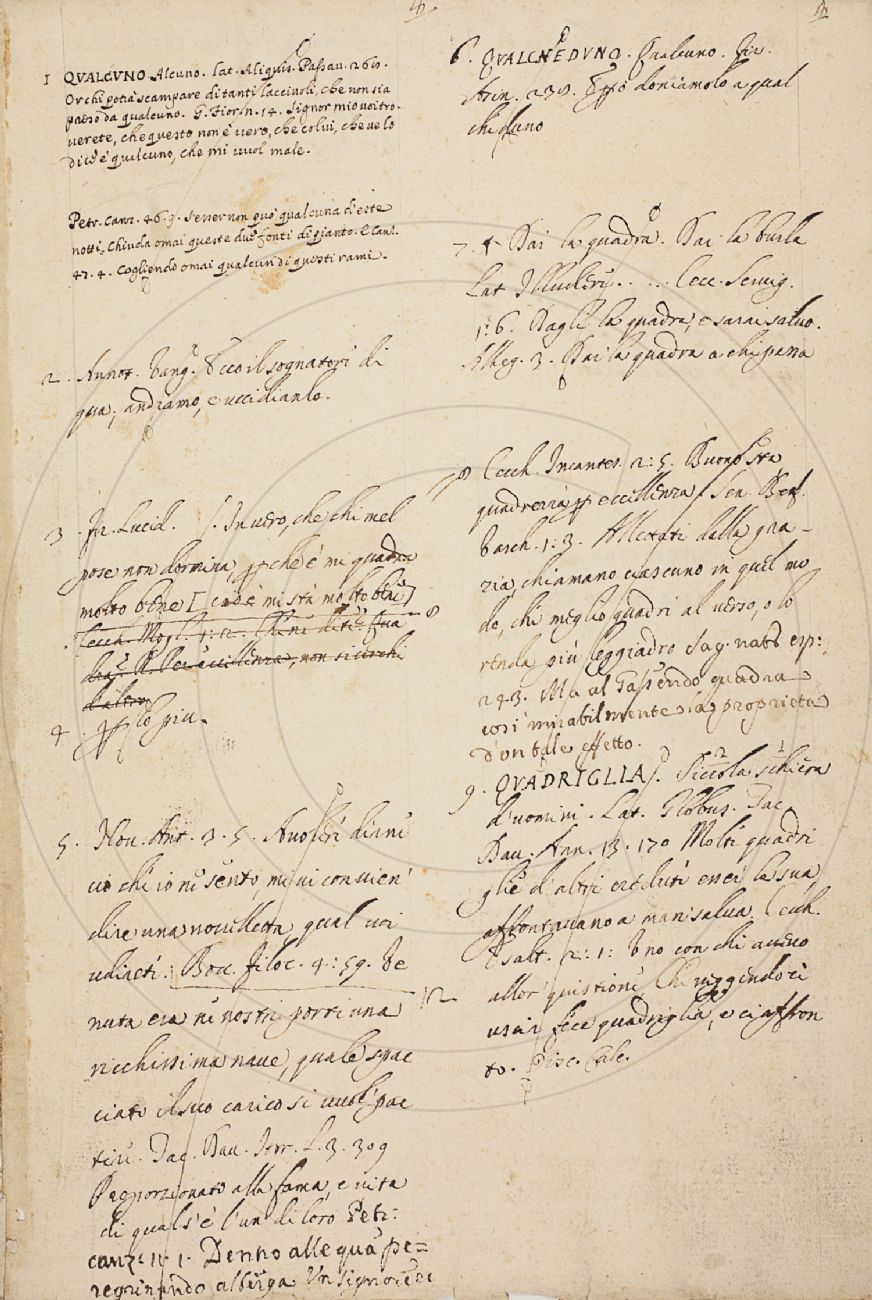 1 QVALCVNO. Alcuno. Lat. Aliquis. Passau. 269.
Or chi potrà scampare di tanti lacciuoli, che non sia
preso da qualcuno. G. Fiorin. 14. Signor mio voi tro-
verete, che questo non è vero, che colui, che ve lo
dice è qualcuno, che mi vuol male.
Petr. Canz. 46. 9. Se non può qualcuna d'este
notti, Chiuda omai queste due fonti di pianto. E Canz.
47. 4. Cogliendo omai qualcun di questi rami.
2. Annot. Vang. Ecco il sognatori di
qua, andiamo, e uccidianlo.
3. Fr. Lucid. In vero, che chi mel
pose non dormiva, che è mi quadra
molto bene [cioè mi stà molto bene]
Cecch. Mogl. 1: 2. sua
Per eccellenza, non si cerchi
d'altro
4. lo più.
5. Nov. Ant. 3. 5. di an
cio ch' io ni sento, mi vi convien
dire una novelletta qual voi
udireti. Bocc. Filoc. 4: 59. Ve
nuta era ni nostri porti una
ricchissima nave, quale spac
ciato il suo carico si vuol par
tire. Tac. Dav. Stor. L. 3. 309
Proporzionato alla fama, e vita
di qual s'è l'un di loro Petr:
canz: 11. 1. Denno alle qua pe=
regrinando alberga Un Signor
6. QVALCHEDVNO. Qualcuno. Fir.
Asin. 239. doniamolo a qual
cheduno
7. Dai la quadra. Dar la burla
Lat. Illudere . . . . . Cecc. Servig.
1: 6. Dagli la quadra, e sarai salvo.
Alleg. 3. Dar la quadra a chi passa
8 Cecch. Incantes. 2: 5. Buono sta
quadreria eccellenza. Sen. Ben.
Varch. 1: 3. Allettati dalla gra-
zia, chiamano ciascuno in quel mo
do, che meglio quadri al verso, o lo
renda più leggiadro Sag. nat. esp:
243. Ma al Gassendo quadra
così mirabilmente la proprietà
d'un tale effetto.
9. QVADRIGLIA. Piccola schiera
d'uomini. Lat. Globus. Tac.
Dav. Ann. 13. 170 Molti quadri
glie d'altri creduti esser la sua
affrontavano a man salva. Cecch.
Esalt. 2: 1: Uno con chi avevo
allor quistioni Chi veggendoci
usciri fece quadriglia, e ci affron
tò. Disc. Calc.
12